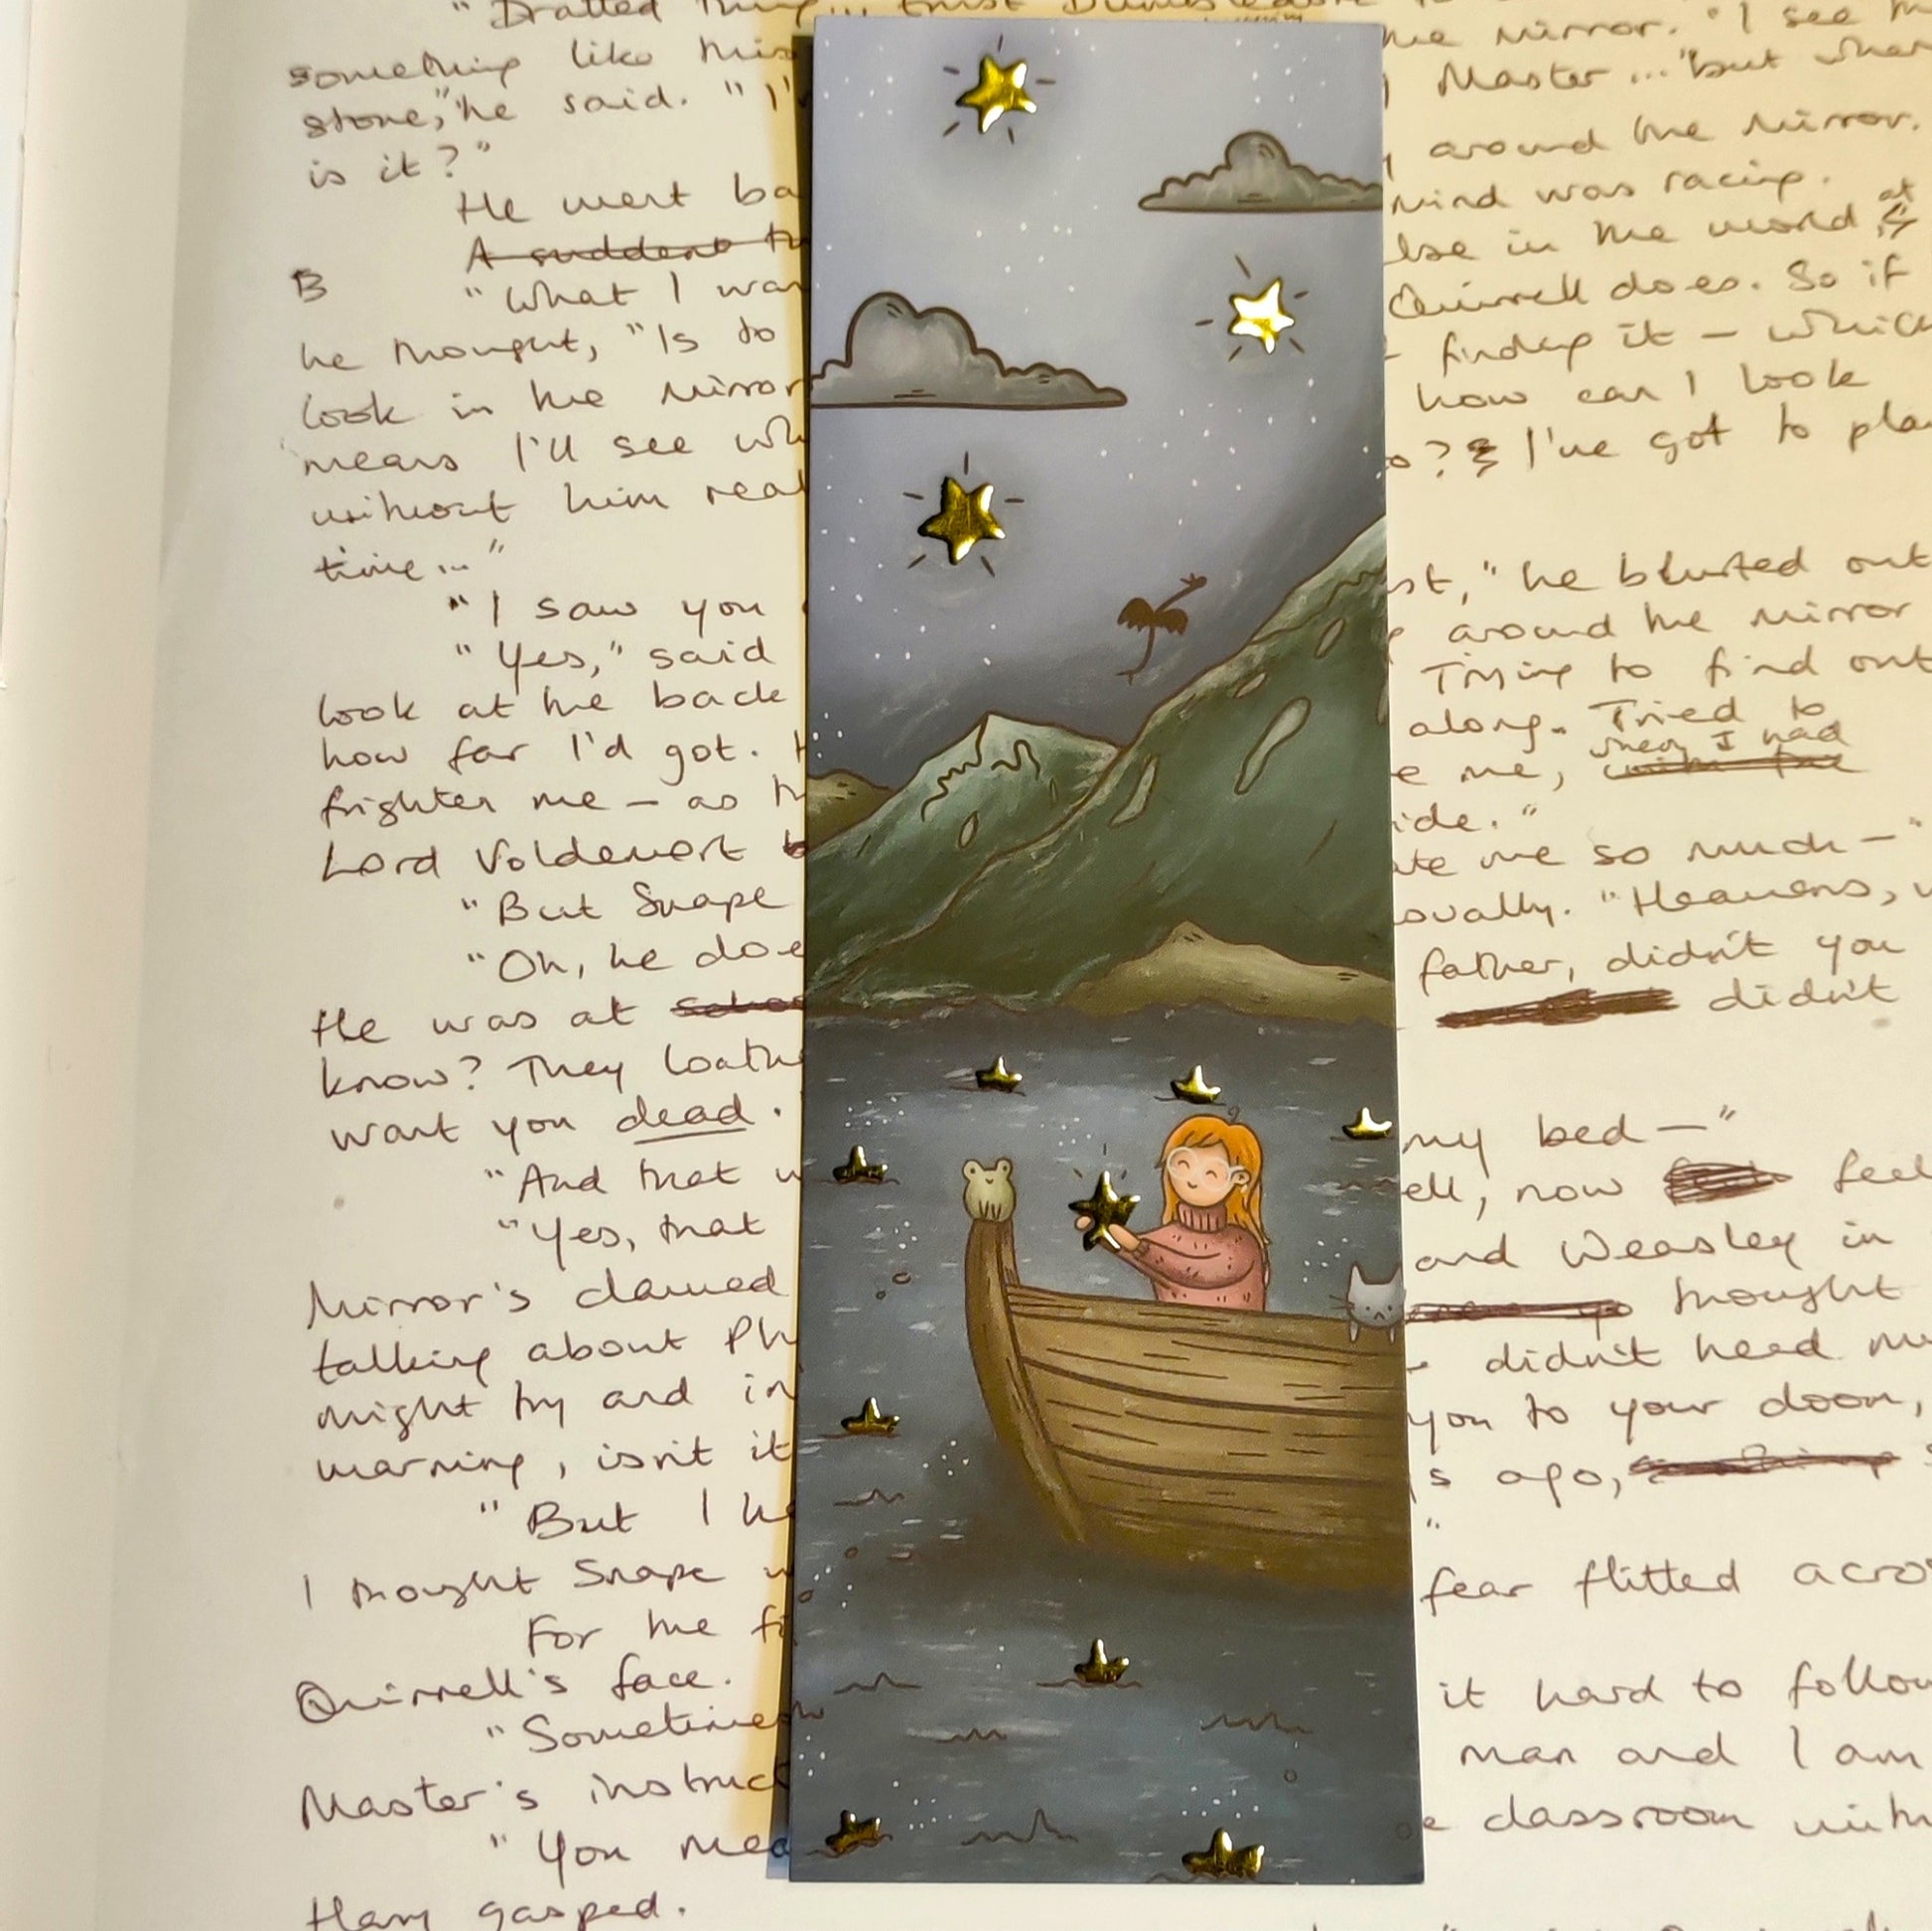 "Dratted thing... trust Dumbledore
something like this me mirror. "I see
stone," he said. "I' Master... "but
is it?" around the mirror.
He went ba mind was racing.
A sudden th lse in the world at
B "What I wan Quirrell does. So if
he thought, "Is to finding it — which
look in the mirror how can I look
means I'll see wh o? I've got to pla
without him real
time..."
"I saw you st," he blurted out
"Yes," said around the mirror
look at the back Trying to find out
how far I'd got. along. Tried to
when I had
frighten me — as th e me,
Lord Voldemort ide."
"But Snape ate me so much —"
"Oh, he doe sually. "Heavens,
father, didn't you
He was at didn't
know? They loathe
want you dead. my bed —"
"And that w ell, now feel
"Yes, that and Weasley in
Mirror's clawed thought
talking about Ph didn't heed
might try and in you to your doom,
warning, isn't it s ago,
"But I he "
I thought Snape w fear flitted acro
For the fi
Quirrell's face. it hard to follow
"Sometimes man and I am
Master's instruc e classroom with
"You mea
Harry gasped.